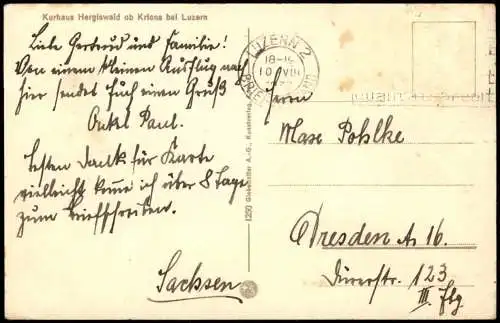 Kurhaus Hergiswald ob Kriens bei Luzern
Liebe Gertrud und Familie!
Von einem kleinen Ausflug nach
hier sendet Euch einen Gruß
Onkel Paul.
Besten Dank für Karte
vielleicht komme ich über 8 Tage
zum Briefschreiben.
Sachsen
Globetrotter A.-G., Kunstverlag,
LUZERN 2
18-19
10 VIII
BRIEF
Herrn
Max Pohlke
Dresden A. 16.
Dürerstr. 123
III.